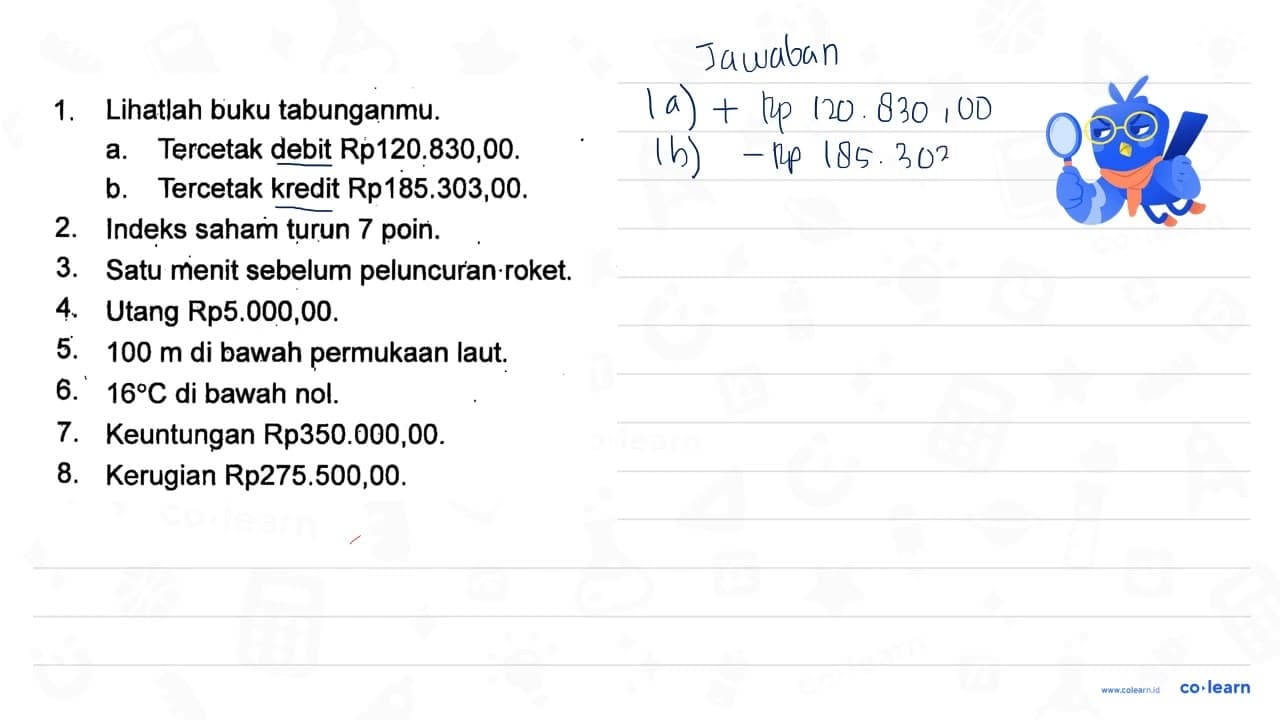 1. Lihatlah buku tabunganmu.
a. Tercetak debit Rp120.830,00.
b. Tercetak kredit Rp185.303,00.
2. Indeks saham turun 7 poin.
3. Satu menit sebelum peluncuran roket.
4. Utang Rp5.000,00.
5. 100 m di bawah permukaan laut.
6. 16°C di bawah nol.
7. Keuntungan Rp350.000,00.
8. Kerugian Rp275.500,00.
Jawaban
1a) + Rp 120.830,00
1b) - Rp 185.303
www.colearn.id co·learn